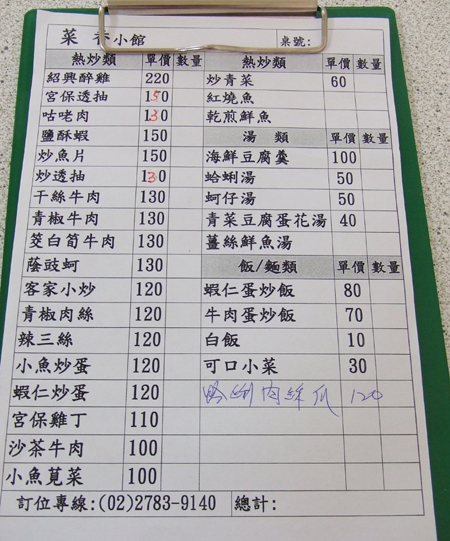 菜香小館 桌號:
熱炒類 單價 數量
紹興醉雞 220
宮保透抽 150
咕老肉 130
鹽酥蝦 150
炒魚片 150
炒透抽 130
干絲牛肉 130
青椒牛肉 130
筊白筍牛肉 130
蔭豉蚵 130
客家小炒 120
青椒肉絲 120
辣三絲 120
小魚炒蛋 120
蝦仁炒蛋 120
宮保雞丁 110
沙茶牛肉 100
小魚莧菜 100
熱炒類 單價 數量
炒青菜 60
紅燒魚
乾煎鮮魚
湯類 單價 數量
海鮮豆腐羹 100
蛤蜊湯 50
蚵仔湯 50
青菜豆腐蛋花湯 40
薑絲鮮魚湯
飯/麵類 單價 數量
蝦仁蛋炒飯 80
牛肉蛋炒飯 70
白飯 10
可口小菜 30
蛤蜊肉絲瓜 120
訂位專線:(02)2783-9140 總計: